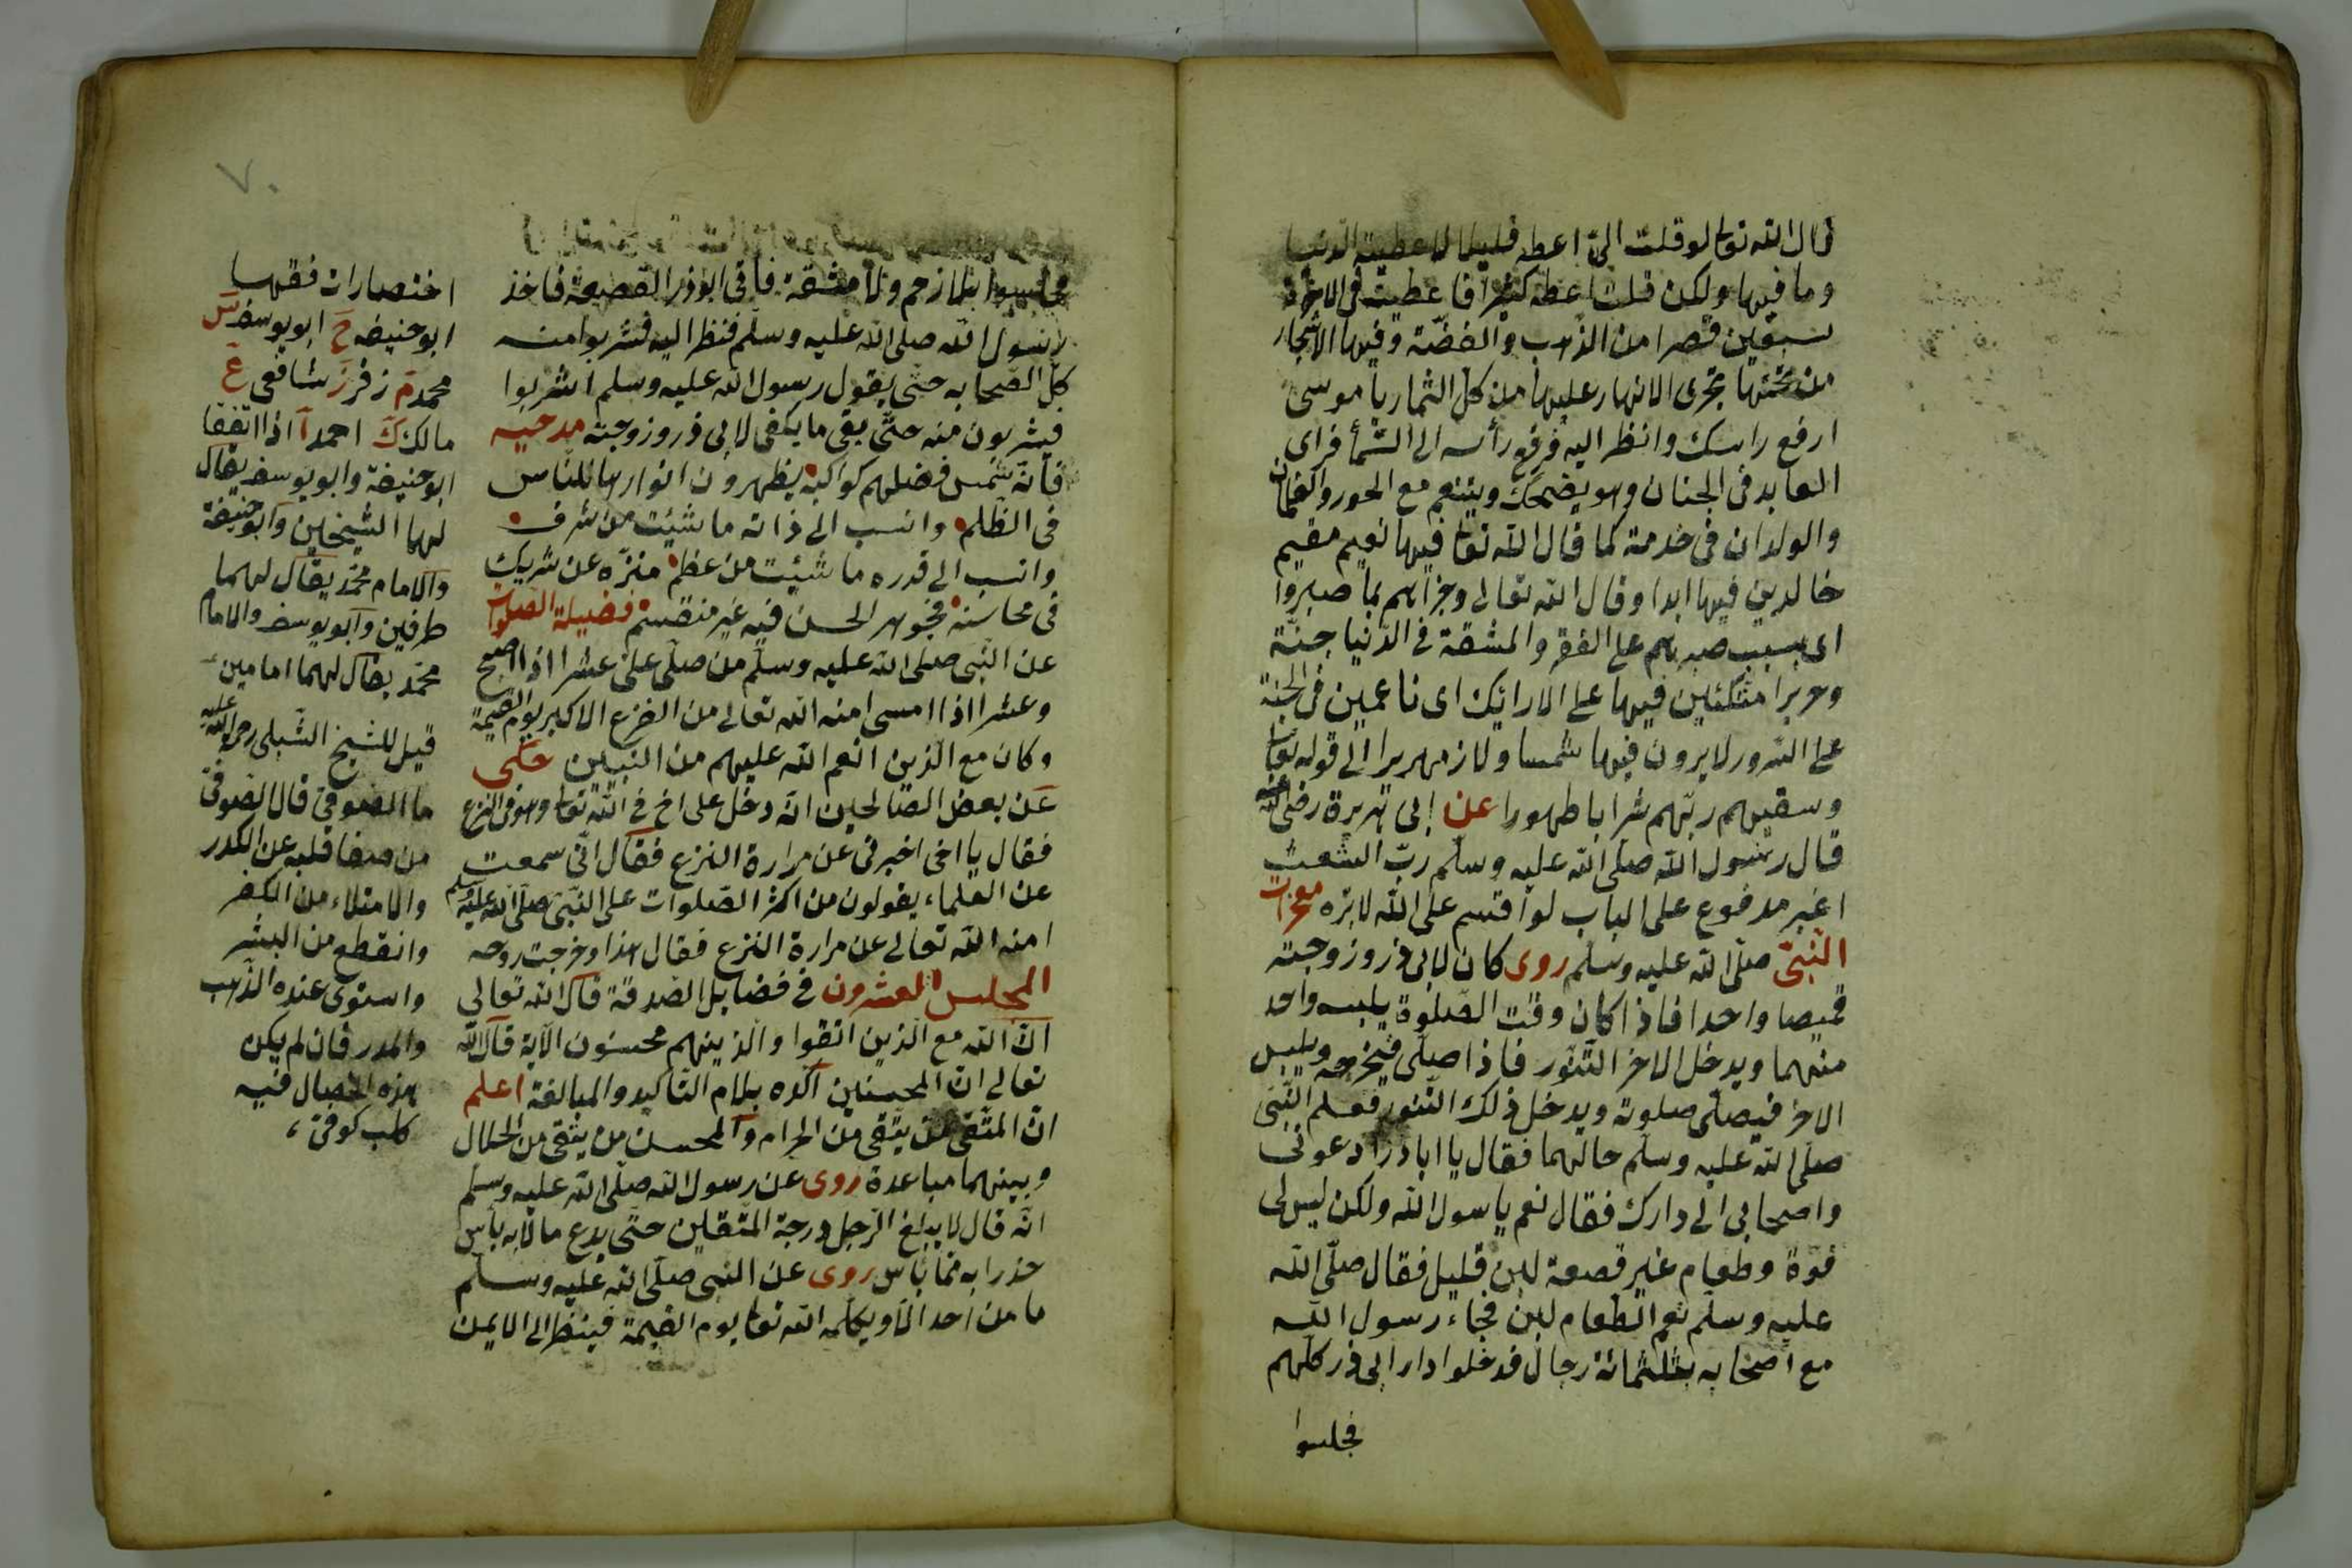 قال الله تعا لو قلت الهى اعطه قليلا لاعطيته الدنيا
وما فيها ولكن قلت اعطه كثيرا فاعطيت فى الاخرة
سبعين قصرا من الذهب والفضّة وفيها الاشجار
من تحتها تجرى الانهار عليها من كلّ الثمار يا موسى
ارفع راسك وانظر اليه فرفع رأسه الى السّمأ فراى
العابد فى الجنان وهو يضحك ويتنعم مع الحور والغلمان
والولدان فى خدمته كما قال الله تعا فيها نعيم مقيم
خالدين فيها ابدا وقال الله تعالى وجزاهم بما صبروا
اى بسبب صبرهم على الفقر والمشقة فى الدّنيا جنّة
وحريرا متكئين فيها على الارايك اى ناعمين فى الجنة
على السّرور لا يرون فيها شمسا ولا زمهريرا الى قوله تعا
وسقيهم ربّهم شرابا طهورا عن ابى هريرة رضى الله عنه
قال رسول الله صلّى الله عليه وسلّم ربّ اشعث
اغبر مدفوع على الباب لو اقسم على الله لابرّه معجزات
النّبىّ صلّى الله عليه وسلّم روى كان لابى ذر وزوجته
قميصا واحدا فاذا كان وقت الصّلوة يلبسه واحد
منهما ويدخل الاخر التّنّور فاذا صلّى فيخرجه ويلبس
الاخر فيصلّى صلوته ويدخل ذلك التّنور فعلم النّبى
صلّى الله عليه وسلّم حالهما فقال يا ابا ذر ادعونى
واصحابى الى دارك فقال نعم يا رسول الله ولكن ليس لى
قوّة وطعام غير قصعة لبن قليل فقال صلّى الله
عليه وسلّم نعم الطعام لبن فجاء رسول الله
مع اصحابه بثلثمائة رجال فدخلوا دار ابى ذر كلّهم
فجلسوا
٧٠
فجلسوا بلا زحم ولا مشقة فاتى ابوذر القصعة فاخذ
رسول الله صلّى الله عليه وسلّم فنظر اليه فشربوا منه
كلّ الصّحابه حتّى يقول رسول الله عليه وسلم اشربوا
فيشربون منه حتّى بقى ما يكفى لابى ذر وزوجته مدحيه
فانّه شمس فضلهم كواكبه يظهرون انوارها للنّاس
فى الظلم وانسب الى ذاته ما شئت من شرف
وانسب الى قدره ما شئت من عظم منزّه عن شريك
فى محاسنه فجوهر الحسن فيه غير منقسم فضيلة الصلوات
عن النّبى صلى الله عليه وسلّم من صلّى علىّ عشرا اذا اصبح
وعشرا اذا امسى امنه الله تعالى من الفزع الاكبر يوم القيمة
وكان مع الّذين انعم الله عليهم من النبيّين حكى
عن بعض الصّالحين انّه دخل على اخ فى الله تعا وهو فى النزع
فقال يا اخى اخبرنى عن مرارة النزع فقال انّى سمعت
عن العلماء يقولون من اكثر الصّلوات على النّبى صلّى الله عليه وسلم
امنه الله تعالى عن مرارة النزع فقال هذا وخرجت روحه
المجلس العشرون فى فضايل الصّدقة قال الله تعالى
انّ الله مع الّذين اتقوا والّذينهم محسنون الآية قال الله
تعالى انّ المحسنين اكّده بلام التأكيد والمبالغة اعلم
انّ المتّقى من يتّقى من الحرام والمحسن من يتّقى من الحلال
وبينهما مباعدة روى عن رسول الله صلّى الله عليه وسلم
انّه قال لا يبلغ الرّجل درجة المتّقين حتّى يدع ما لا به بأس
حذرا به ممّا بأس روى عن النبى صلّى الله عليه وسلّم
ما من احد الّا ويكلّمه الله تعا يوم القيمة فينظر الى الايمن
اختصارات فقها
ابوحنيفه ح ابويوسف س
محمد م زفر ز شافعى ع
مالك ك احمد ا اذا اتّفقا
ابوحنيفة وابويوسف يقال
لهما الشيخين وابوحنيفة
والامام محمّد يقال لهما
طرفين وابويوسف والامام
محمّد يقال لهما امامين
قيل للشيخ الشّبلى رحمة الله عليه
ما الصّوفى قال الصّوفى
من صفا قلبه عن الكدر
والامتلاء من الفكر
وانقطع من البشر
واستوى عنده الذّهب
والمدر فان لم يكن
هذه الخصال فيه
كلب كوفىّ